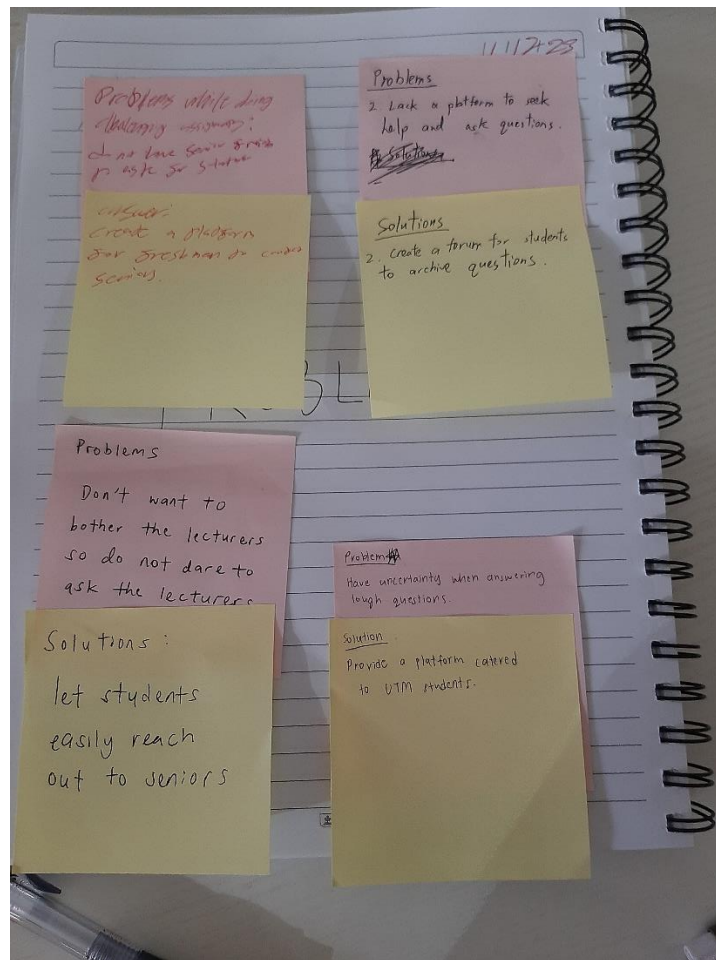 11/12/23
Problems while doing
challenging assignment:
do not have senior
to ask for
answer:
create a platform
for freshman to
seniors.
Problems
2. Lack a platform to seek
help and ask questions.
Solutions
Solutions
2. create a forum for students
to archive questions.
Problems
Don't want to
bother the lecturers
so do not dare to
ask the lecturers
Solutions :
let students
easily reach
out to seniors
Problem
Have uncertainty when answering
tough questions.
Solution
Provide a platform catered
to UTM students.